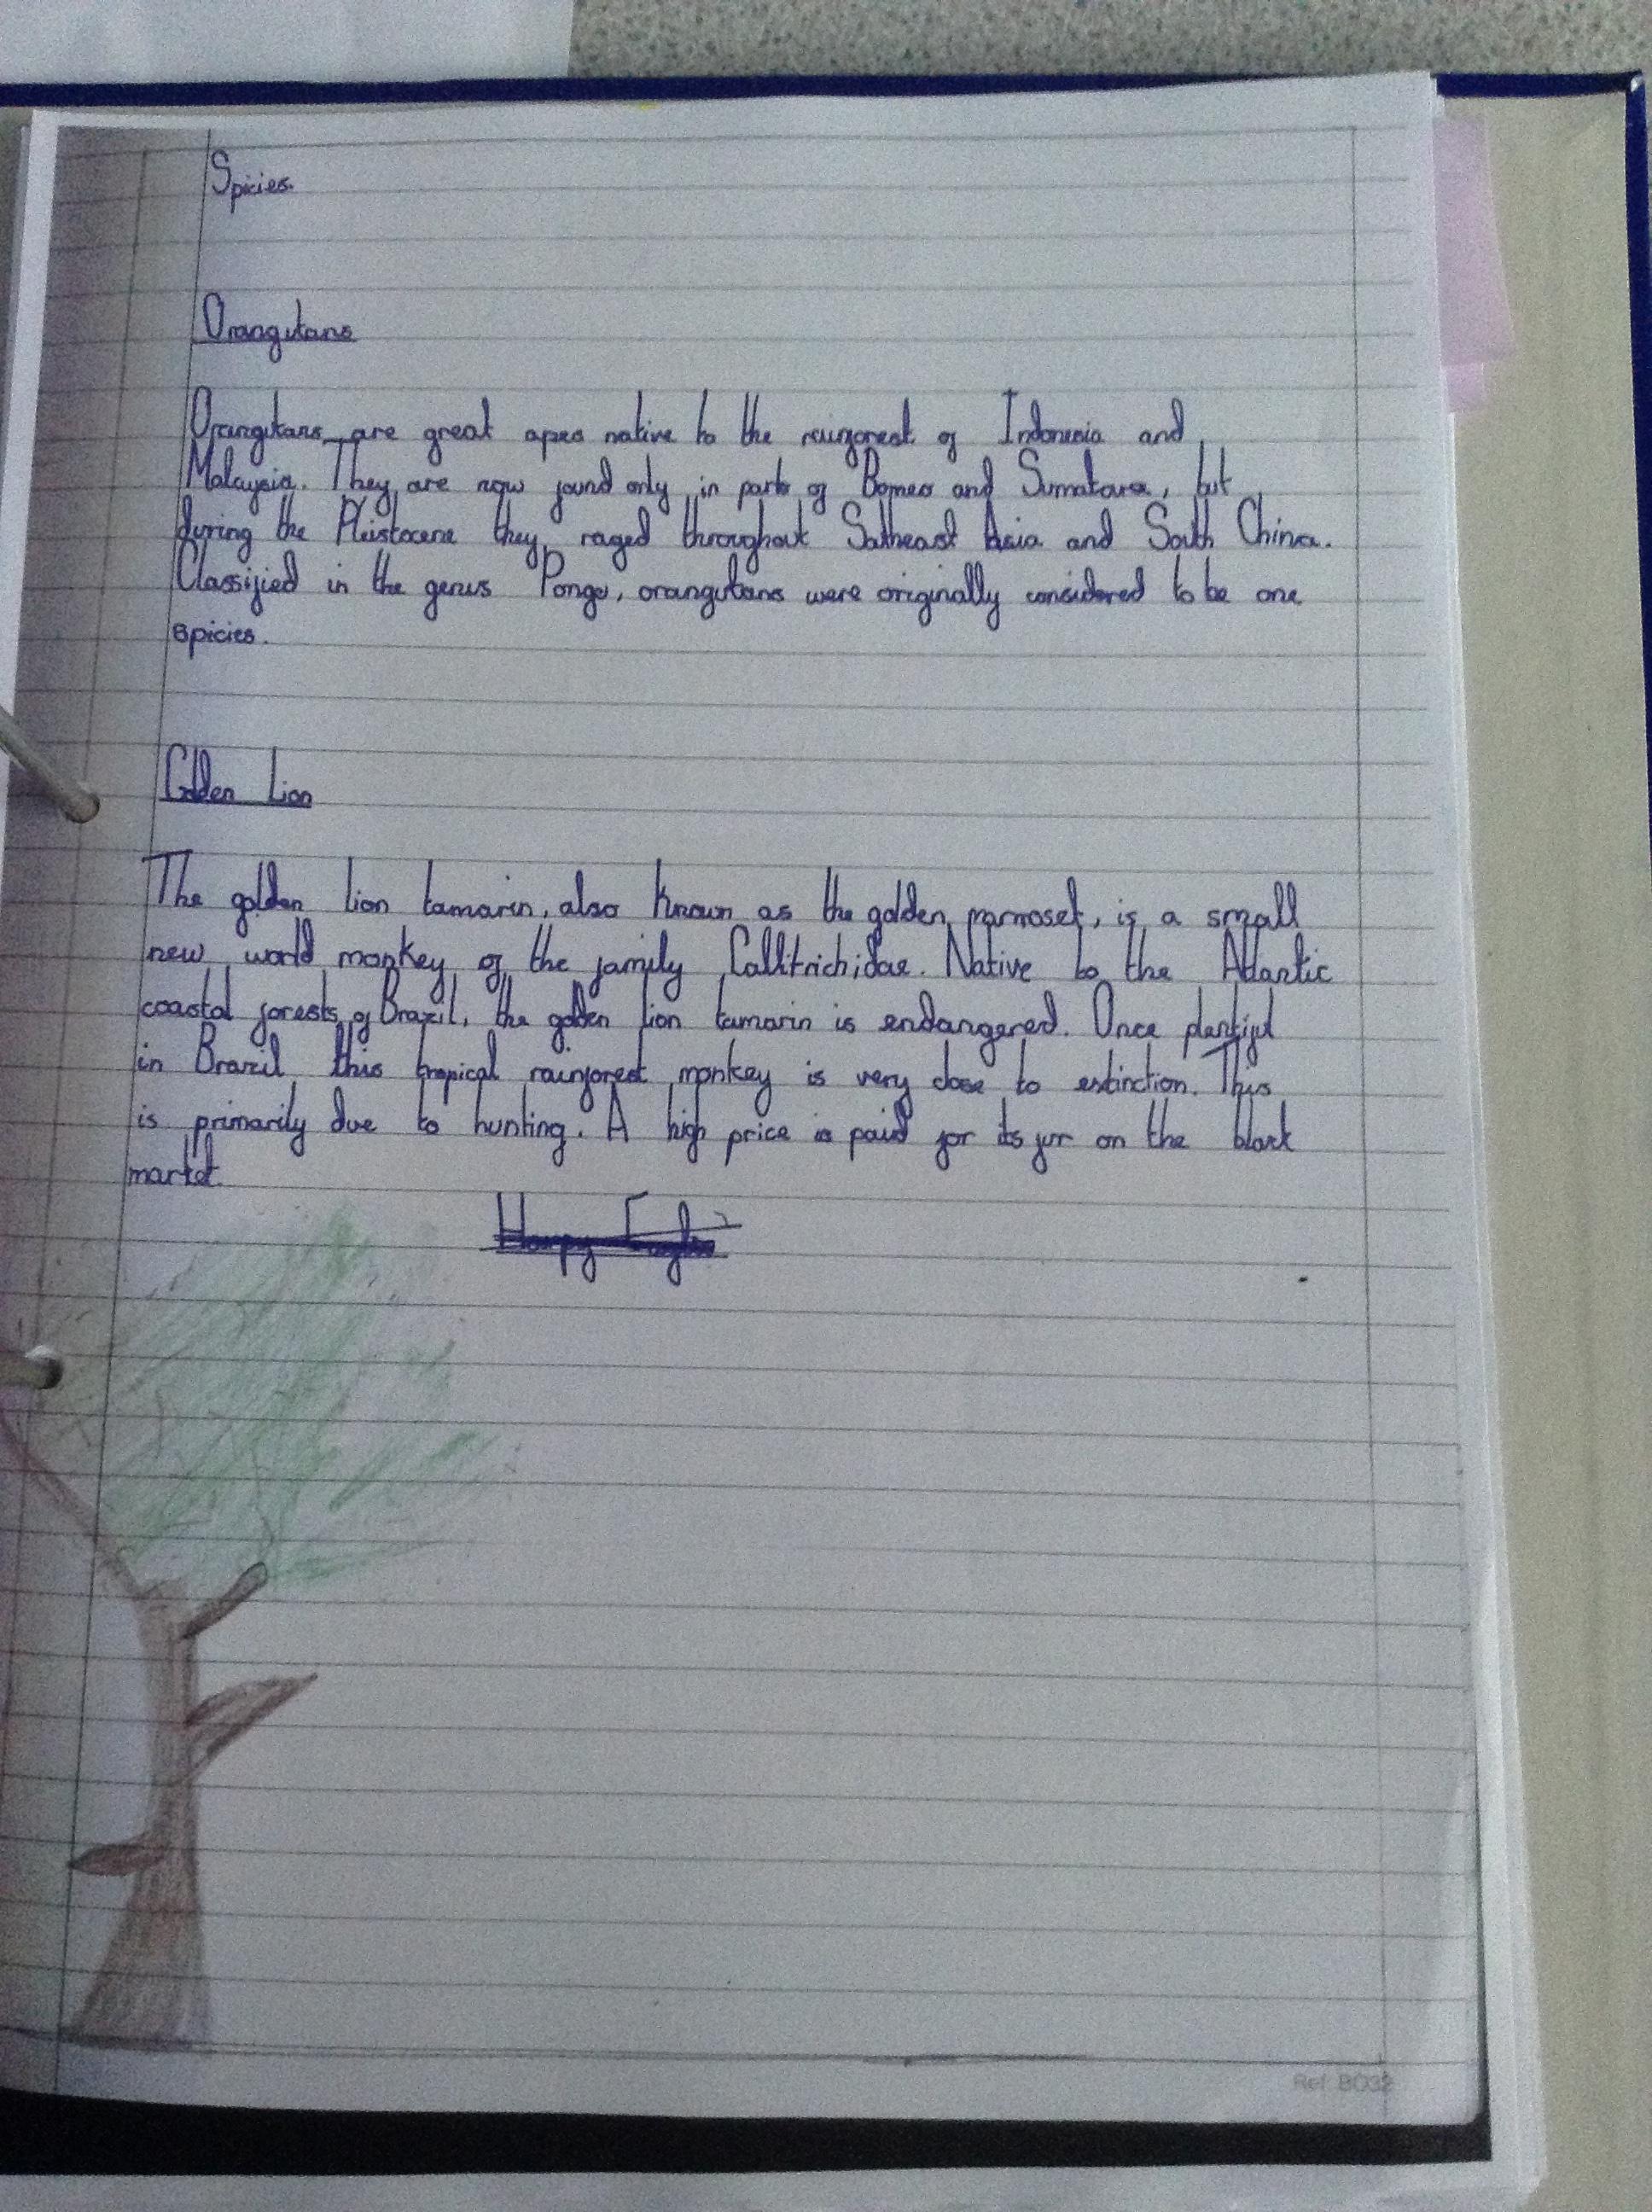 Spicies.
Orangutans
Orangutans are great apes native to the rainforest of Indonesia and
Malaysia. They are now found only in parts of Borneo and Sumatara, but
during the Pleistocene they raged throughout Satheast Asia and South China.
Classified in the genus Pongo, orangutans were originally considered to be one
spicies.
Golden Lion
The golden lion tamarin, also known as the golden marmoset, is a small
new world monkey of the family Callitrichidae. Native to the Atlantic
coastal forests of Brazil, the golden lion tamarin is endangered. Once plentiful
in Brazil this tropical rainforest monkey is very close to extinction. This
is primarily due to hunting. A high price is paid for its fur on the black
market.
Harpy
Ref: BO32